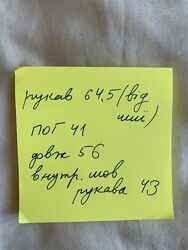 рукав 64,5 (від
шиї)
ПОГ 41
довж 56
внутр. шов
рукава 43